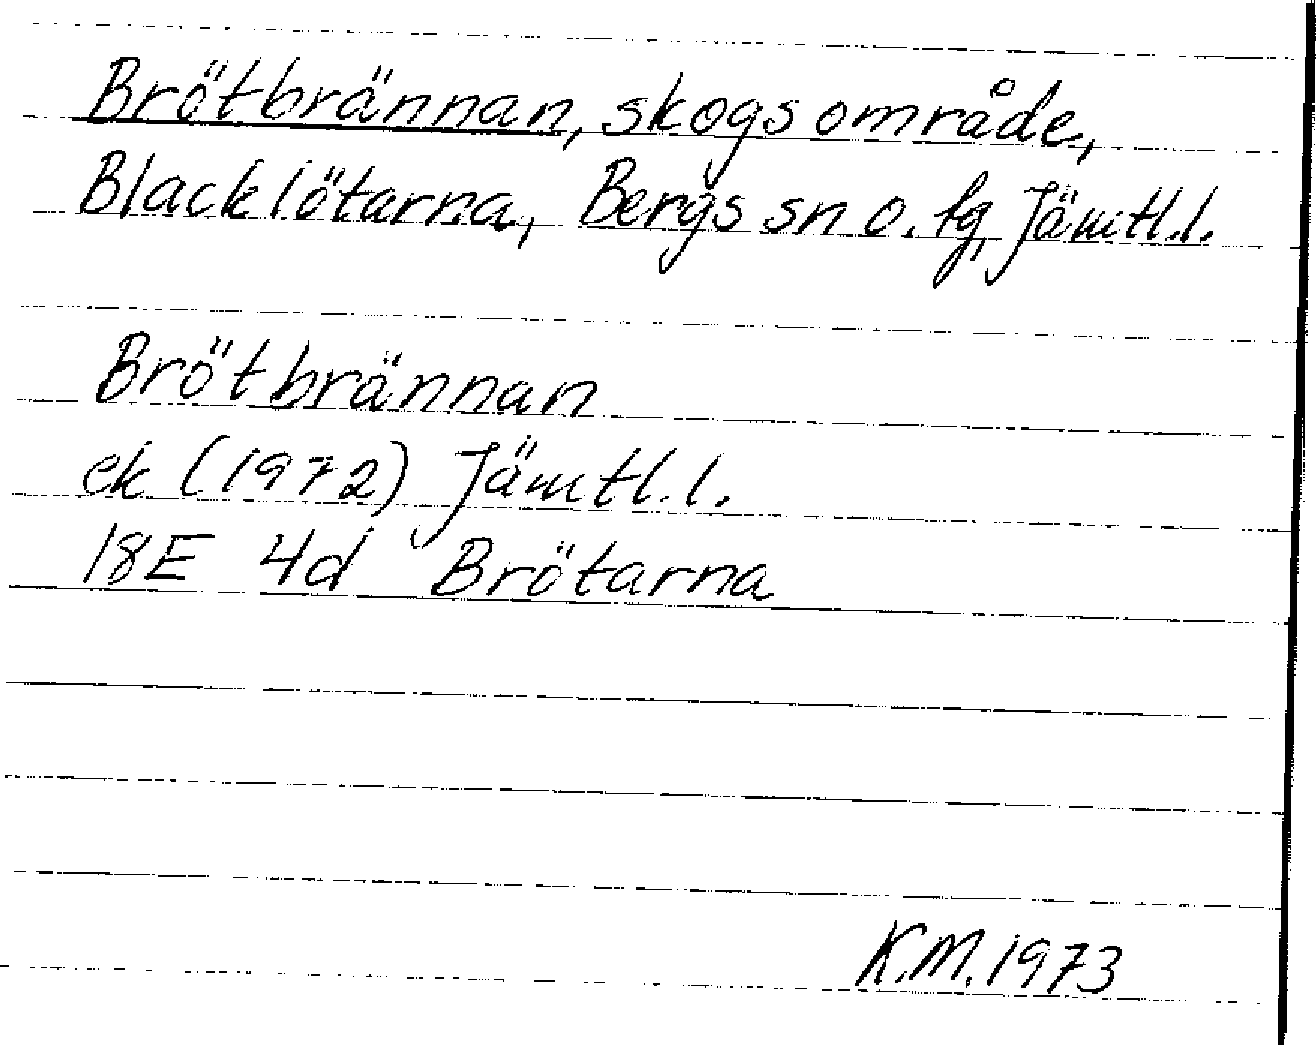 Brötbrännan, skogsområde,
Blacklötarna, Bergs sn o. tg, Jämtl.l.
Brötbrännan
ek (1972) Jämtl.l.
18E 4d Brötarna
K.M. 1973